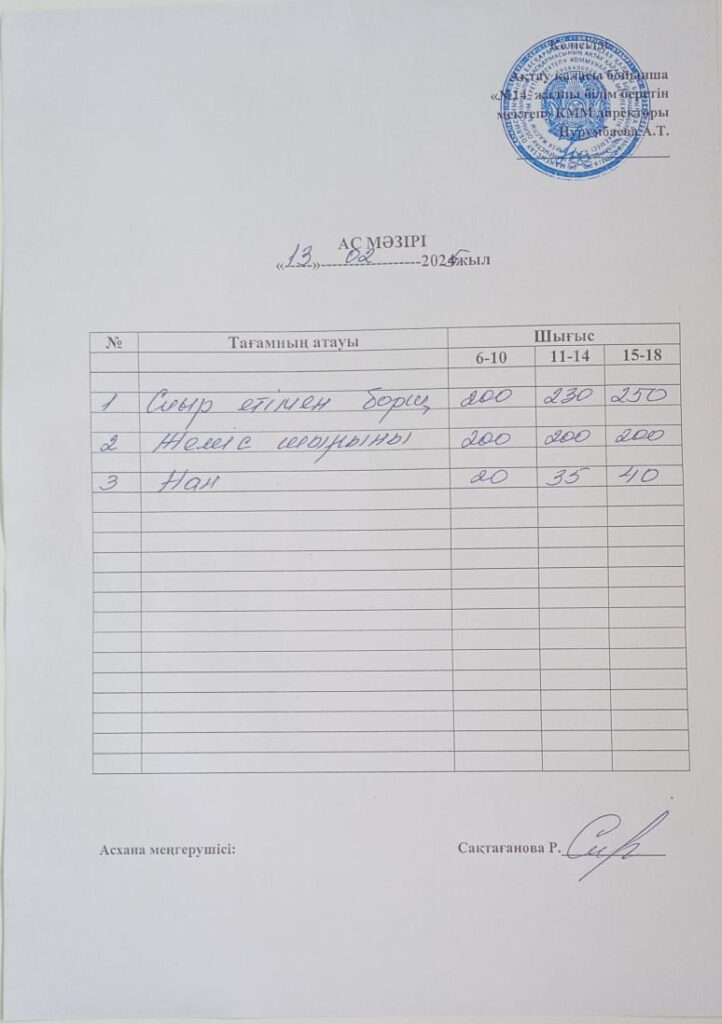 Келісілді
Ақтау қаласы бойынша
«№14 жалпы білім беретін
мектеп» КММ директоры
Нурумбаева А.Т.
АС МӘЗІРІ
«13» 02 2025 жыл
№ Тағамның атауы Шығыс
6-10 11-14 15-18
1 Сиыр етімен борщ 200 230 250
2 Жеміс шырыны 200 200 200
3 Нан 20 35 40
Асхана меңгерушісі: Сақтағанова Р.